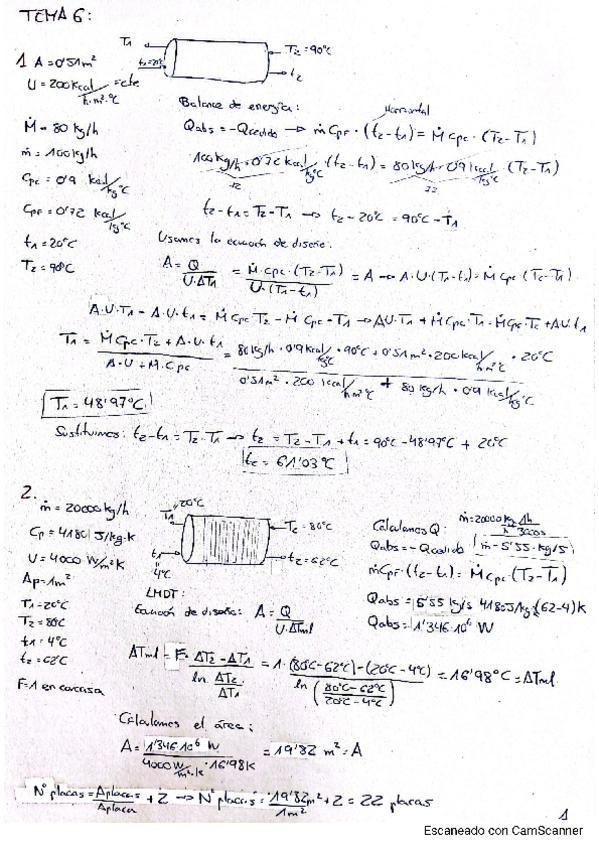 TEMA 6:
1 A = 0'51 m²
U = 200 kcal/h·m²·°C = cte
Ṁ = 80 kg/h
ṁ = 100 kg/h
Cpc = 0'9 kcal/kg°C
CpF = 0'72 kcal/kg°C
t1 = 20°C
T2 = 90°C
T1
t1 = 20°C
T2 = 90°C
t2
Balance de energía:
Horizontal
Qabs = -Qcedido → ṁ CpF · (t2-t1) = Ṁ Cpc · (T2-T1)
100 kg/h · 0'72 kcal/kg°C · (t2-t1) = 80 kg/h · 0'9 kcal/kg°C · (T2-T1)
72 72
t2-t1 = T2-T1 → t2-20°C = 90°C - T1
Usamos la ecuación de diseño:
A = Q/U·ΔT1 = Ṁ·Cpc·(T2-T1)/U·(T1-t1) = A → A·U·(T1-t1) = Ṁ Cpc·(T2-T1)
A·U·T1 - A·U·t1 = Ṁ Cpc T2 - Ṁ Cpc · T1 → AU·T1 + Ṁ Cpc T1 = Ṁ Cpc T2 + AU·t1
T1 = Ṁ Cpc·T2 + A·U·t1 / A·U + M·Cpc = 80 kg/h · 0'9 kcal/kg°C · 90°C + 0'51 m² · 200 kcal/h m²°C · 20°C / 0'51 m² · 200 kcal/h m²°C + 80 kg/h · 0'9 kcal/kg°C
T1 = 48'97°C
Sustituimos: t2-t1 = T2-T1 → t2 = T2-T1+t1 = 90°C - 48'97°C + 20°C
t2 = 61'03°C
2. ṁ = 20000 kg/h
Cp = 4180 J/kg·K
U = 4000 W/m²K
Ap = 1m²
T1 = 20°C
T2 = 80°C
t1 = 4°C
t2 = 62°C
F = 1 en carcasa
T1 20°C
T2 = 80°C
t1
4°C
t2 = 62°C
LMDT:
Ecuación de diseño: A = Q/U·ΔTml
Calculamos Q: ṁ = 20000 kg/h 1h/3600s
Qabs = -Qcedido ṁ = 5'55 kg/s
ṁ CpF·(t2-t1) = Ṁ Cpc·(T2-T1)
Qabs = 5'55 kg/s 4180 J/kg·K (62-4) K
Qabs = 1'346·10⁶ W
ΔTml = F· ΔT2-ΔT1 / ln ΔT2/ΔT1 = 1·(80°C-62°C)-(20°C-4°C) / ln (80°C-62°C/20°C-4°C) = 16'98°C = ΔTml
Calculamos el área:
A = 1'346·10⁶ W / 4000 W/m²·K · 16'98 K = 19'82 m² = A
Nº placas = Aplacas/Aplaca + 2 → Nº placas = 19'82 m²/1m² + 2 = 22 placas
1
Escaneado con CamScanner